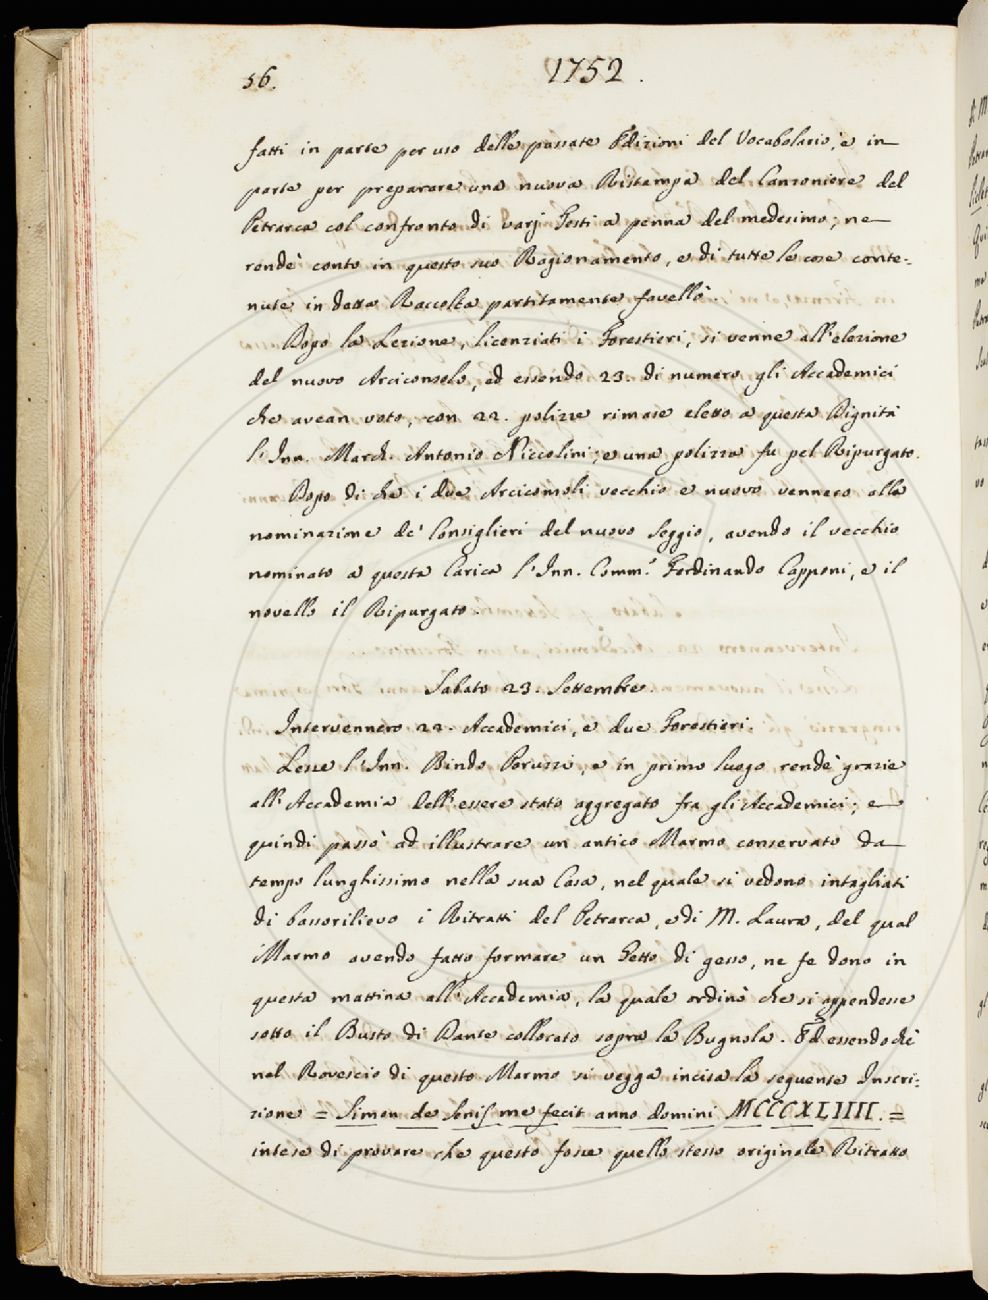 56.
1752.
fatti in parte per uso delle passate Edizioni del Vocabolario, e in
parte per preparare una nuova Ristampa del Canzoniere del
Petrarca col confronto di varj Testi a penna del medesimo; ne
rendè conto in questo suo Ragionamento, e di tutte le cose conte-
nute in detta Raccolta partitamente favellò.
Dopo la Lezione, licenziati i Forestieri, si venne all'elezione
del nuovo Arciconsolo, ed essendo 23. di numero gli Accademici
che avean voto, con 22. polizze rimase eletto a questa Dignità
l'Inn. March. Antonio Niccolini; e una polizza fu pel Ripurgato.
Dopo di che i due Arciconsoli vecchio e nuovo vennero alla
nominazione de' Consiglieri del nuovo Seggio, avendo il vecchio
nominato a questa Carica l'Inn. Comm.e Ferdinando Capponi, e il
novello il Ripurgato.
Sabato 23. Settembre.
Intervennero 22. Accademici, e due Forestieri.
Lesse l'Inn. Bindo Peruzzi, e in primo luogo rendè grazie
all'Accademia dell'essere stato aggregato fra gli Accademici; e
quindi passò ad illustrare un antico Marmo conservato da
tempo lunghissimo nella sua Casa, nel quale si vedono intagliati
di bassorilievo i Ritratti del Petrarca, e di M. Laura, del qual
Marmo avendo fatto formare un Getto di gesso, ne fe dono in
questa mattina all'Accademia, la quale ordinò che si appendesse
sotto il Busto di Dante collocato sopra la Bugnola. Ed essendochè
nel Rovescio di questo Marmo si vegga incisa la seguente Inscri-
zione = Simon de Senis me fecit anno domini MCCCXLIIII. =
intese di provare che questo fosse quello stesso originale Ritratto